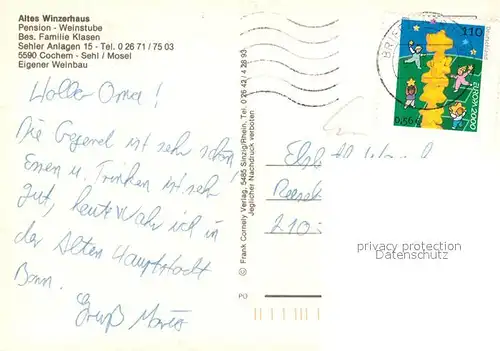 Altes Winzerhaus
Pension - Weinstube
Bes. Familie Klasen
Sehler Anlagen 15 - Tel. 0 26 71 / 75 03
5590 Cochem - Sehl / Mosel
Eigener Weinbau
Hallo Oma!
Die Gegend ist sehr schön,
Essen u. Trinken ist sehr
gut, heute Wahr ich in
der Alten Hauptstadt
Bonn.
Gruß
© Frank Cornely Verlag, 5485 Sinzig/Rhein, Tel. 0 26 42 / 4 28 93
Jeglicher Nachdruck verboten
PD
110
0,56 €
EUROPA 2000
Deutschland
BRIEF
210
privacy protection
Datenschutz